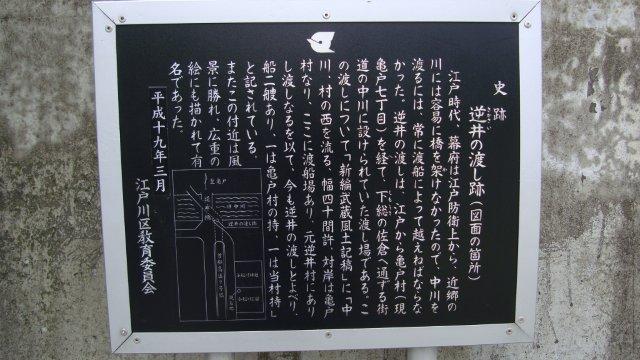 史跡
逆井の渡し跡(図面の箇所)
江戸時代、幕府は江戸防衛上から、近郷の
川には容易に橋を架けなかったので、中川を
渡るには、常に渡船によって越えねばならな
かった。逆井の渡しは、江戸から亀戸村(現
亀戸七丁目)を経て、下総の佐倉へ通ずる街
道の中川に設けられていた渡し場である。こ
の渡しについて「新編武蔵風土記稿」に「中
川、村の西を流る、幅四十間許、対岸は亀戸
村なり、ここに渡船場あり、元逆井村にあり
し渡しなるを以て、今も逆井の渡しと上べり、
船二艘あり、一は亀戸村の持、一は当村持」
と記されている。
またこの付近は風
景に勝れ、広重の
絵にも描かれて有
名であった。
平成十九年三月
江戸川区教育委員会
至亀戸
旧中川
逆井橋
逆井の渡し跡
首都高速7号線
現在地